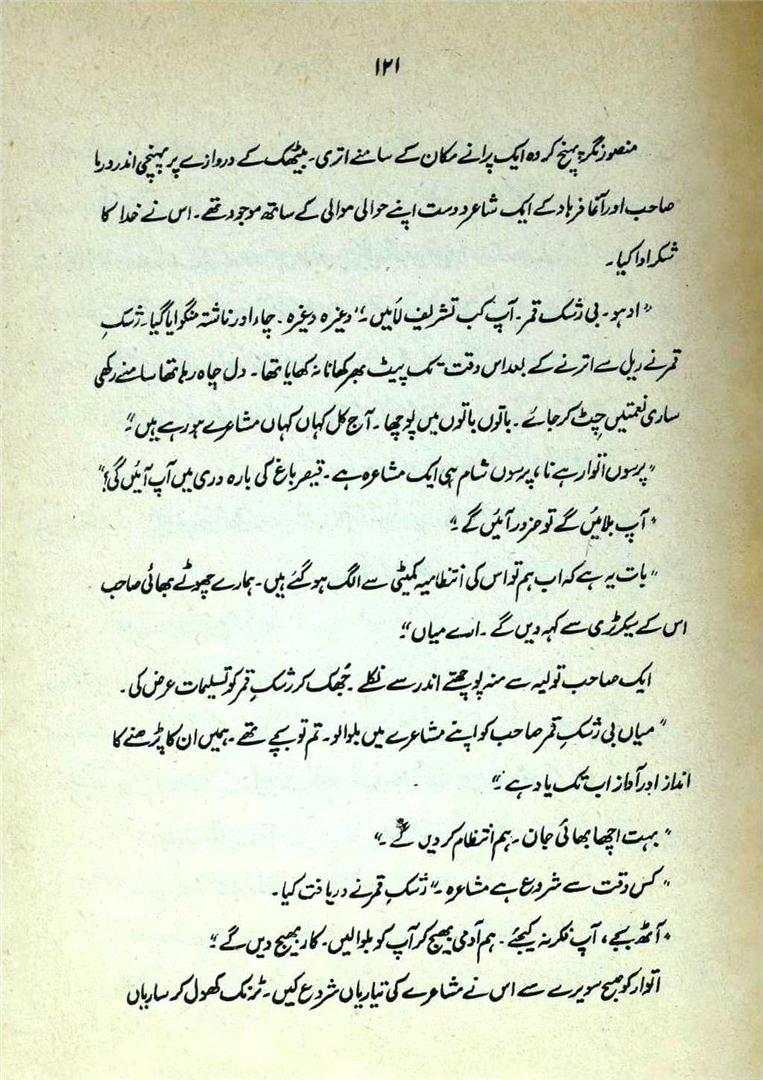 ۱۲۱
منصور نگر پہنچ کر وہ ایک پرانے مکان کے سامنے اتری۔ بیٹھک کے دروازے پر پہنچی اندر دریا
صاحب اور آغا فرہاد کے ایک شاعر دوست اپنے حوالی موالی کے ساتھ موجود تھے۔ اس نے خدا کا
شکر ادا کیا۔
"اوہو۔ بی رشک قمر۔ آپ کب تشریف لائیں۔" وغیرہ وغیرہ۔ چاء اور ناشتہ منگوایا گیا۔ رشکِ
قمر نے ریل سے اترنے کے بعد اس وقت تک پیٹ بھر کھانا نہ کھایا تھا۔ دل چاہ رہا تھا سامنے رکھی
ساری نعمتیں چٹ کر جائے۔ باتوں باتوں میں پوچھا۔ آج کل کہاں کہاں مشاعرے ہو رہے ہیں"۔
"پرسوں اتوار ہے نا، پرسوں شام ہی ایک مشاعرہ ہے۔ قیصر باغ کی بارہ دری میں آپ آئیں گی؟"
"آپ بلائیں گے تو ضرور آئیں گے۔"
"بات یہ ہے کہ اب ہم تو اس کی انتظامیہ کمیٹی سے الگ ہو گئے ہیں۔ ہمارے چھوٹے بھائی صاحب
اس کے سیکرٹری سے کہہ دیں گے۔ ارے میاں"۔
ایک صاحب تولیہ سے منہ پوچھتے اندر سے نکلے۔ جُھک کر رشکِ قمر کو تسلیمات عرض کی۔
"میاں بی رشکِ قمر صاحب کو اپنے مشاعرے میں بلوالو۔ تم تو بچے تھے۔ ہمیں ان کا پڑھنے کا
انداز اور آواز اب تک یاد ہے۔"
"بہت اچھا بھائی جان۔ ہم انتظام کر دیں گے۔"
"کس وقت سے شروع ہے مشاعرہ۔" رشکِ قمر نے دریافت کیا۔
"آٹھ بجے، آپ فکر نہ کیجئے۔ ہم آدمی بھیج کر آپ کو بلوالیں۔ کار بھیج دیں گے۔"
اتوار کو صبح سویرے سے اس نے مشاعرے کی تیاریاں شروع کیں۔ ٹرنک کھول کر ساریاں